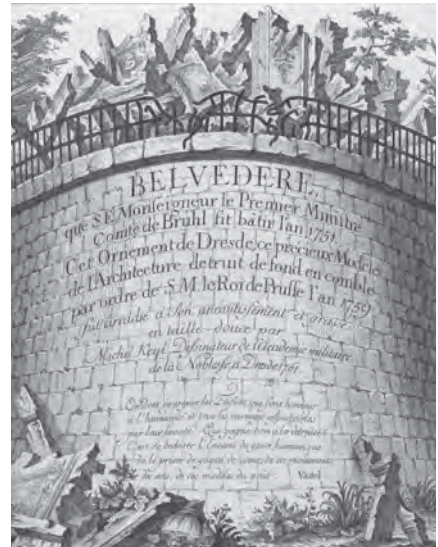 BELVEDERE,
que S. E. Monseigneur le Premier Ministre
Comte de Brühl fit bâtir l'an 1751.
Cet Ornement de Dresde, ce precieux Modele
de l'Architecture detruit de fond en comble
par ordre de S. M. le Roi de Prusse l'an 1759
fut à Son aneantissement et gravé
en taille douce par
Michel Keyl, Dessinateur de l'Academie militaire
de la Noblesse, à Dresde 1761.
On doit epargner les Edifices qui font honneur
à l'humanité et tous les ouvrages
par leur beauté. Que gagne-t-on à les détruire?
C'est se declarer l'Ennemi du genre humain, que
de le priver de gaieté de coeur, de ces monumens
des arts, de ces modeles du gout. Vattel